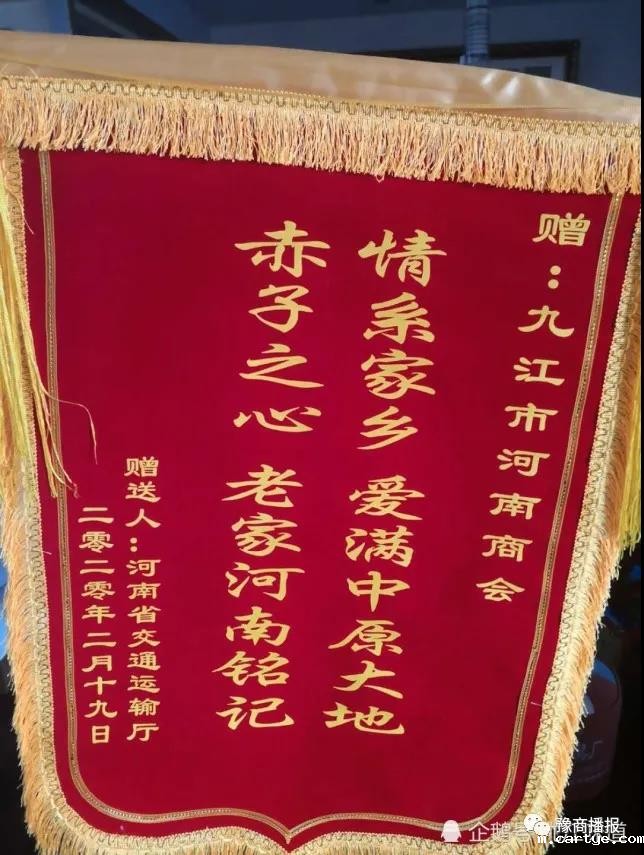 赠：九江市河南商会
情系家乡 爱满中原大地
赤子之心 老家河南铭记
赠送人：河南省交通运输厅
二零二零年二月十九日
豫商播报
企鹅号
m.cartye.com